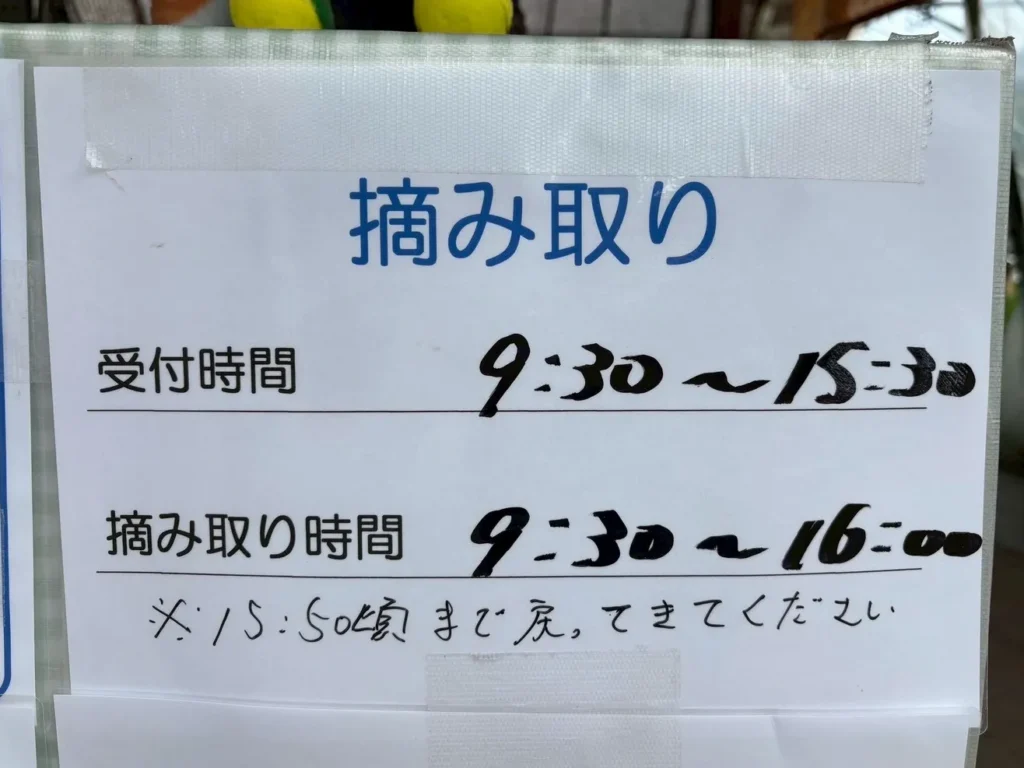 摘み取り
受付時間 9:30～15:30
摘み取り時間 9:30～16:00
※15:50頃まで戻ってきてください